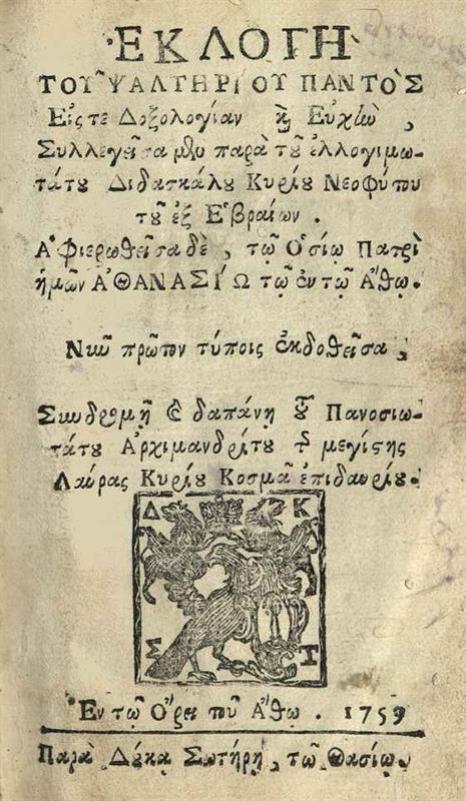 ἘΚΛΟΓῊ
ΤΟΥ͂ ΨΑΛΤΗΡΊΟΥ ΠΑΝΤῸΣ
Εἴς τε Δοξολογίαν καὶ Εὐχὴν,
Συλλεγεῖσα μὲν παρὰ τοῦ ἐλλογιμω-
τάτου Διδασκάλου Κυρίου Νεοφύτου
τοῦ ἐξ Ἑβραίων.
Ἀφιερωθεῖσα δὲ, τῷ Ὁσίῳ Πατρὶ
ἡμῶν ἈΘΑΝΑΣΊΩ τῷ ἐν τῷ Ἄθῳ.
Νῦν πρῶτον τύποις ἐκδοθεῖσα,
Συνδρομῇ καὶ δαπάνῃ τοῦ Πανοσιω-
τάτου Ἀρχιμανδρίτου τῆς μεγίστης
Λαύρας Κυρίου Κοσμᾶ ἐπιδαυρίου.
Δ Κ
Σ Τ
Ἐν τῷ Ὄρει τοῦ Ἄθω. 1759
Παρὰ Δούκα Σωτήρῃ, τῷ Θασίῳ.